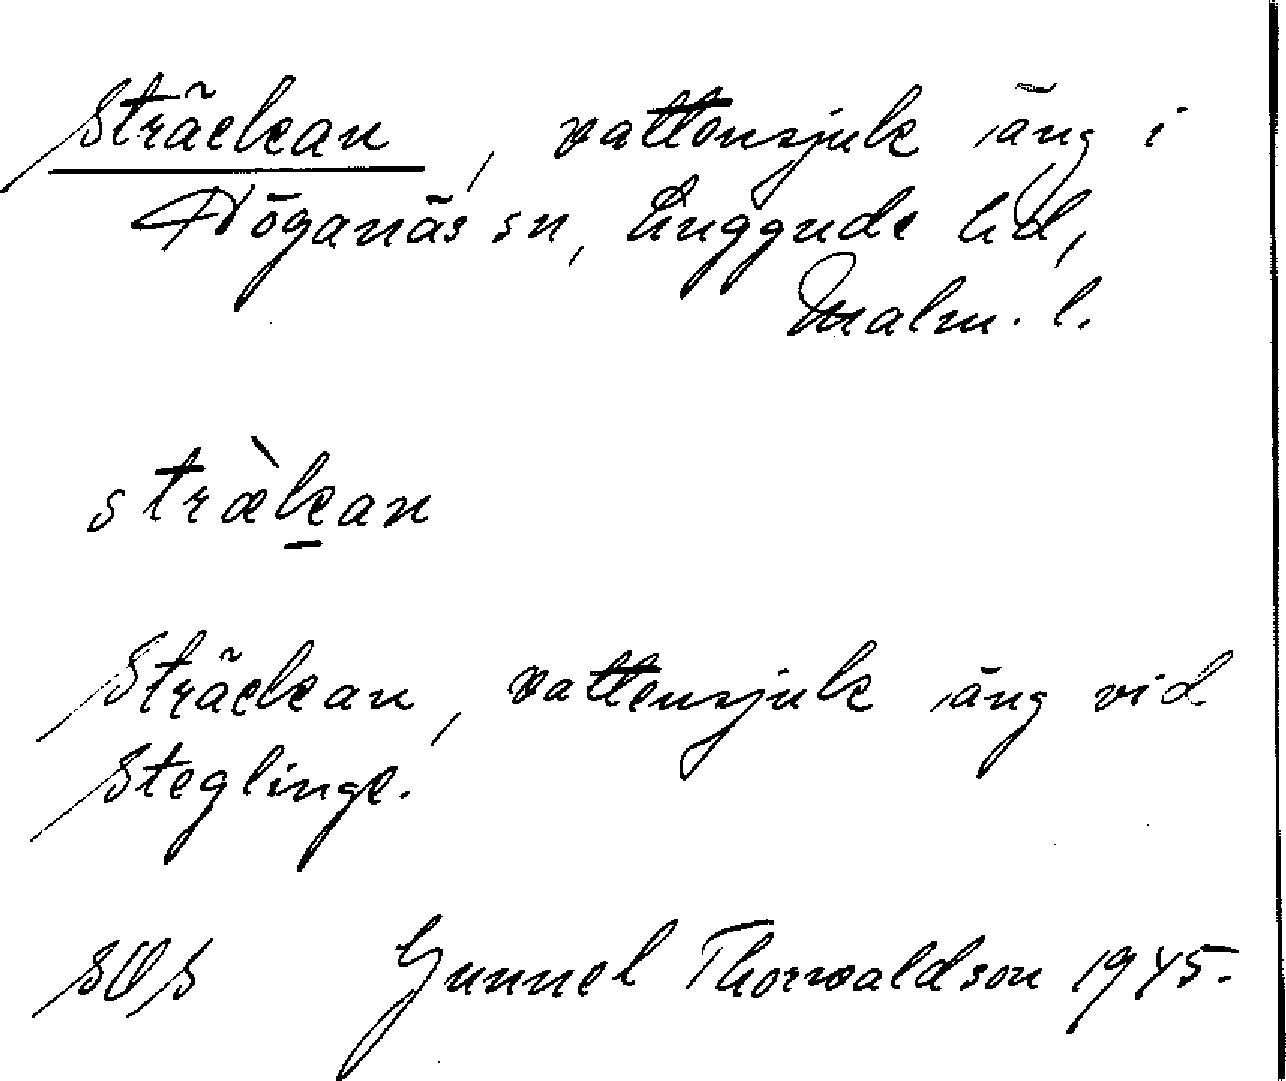 Sträckan, vattensjuk äng i
Höganäs sn, Luggude hd,
Malm. l.
stræ̀k̠an
Sträckan, vattensjuk äng vid
Steglinge.
SOS Gunnel Thorwaldson 1945.